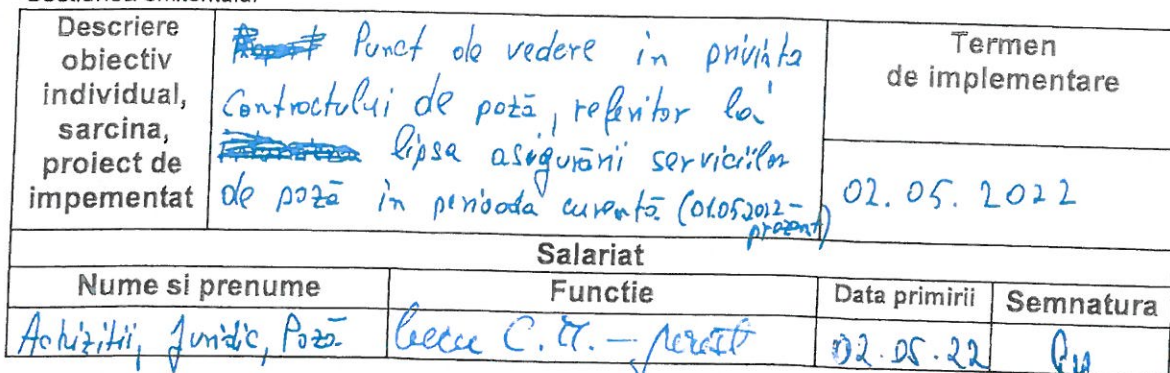 Descriere
obiectiv
individual,
sarcina,
proiect de
impementat
Punct de vedere in privinta
Contractului de pază, referitor la
lipsa asigurării serviciilor
de pază in perioada curentă (01.05.2022-
prezent)
Termen
de implementare
02.05.2022
Salariat
Nume si prenume
Functie
Data primirii
Semnatura
Achizitii, Juridic, Pază
C.
02.05.22